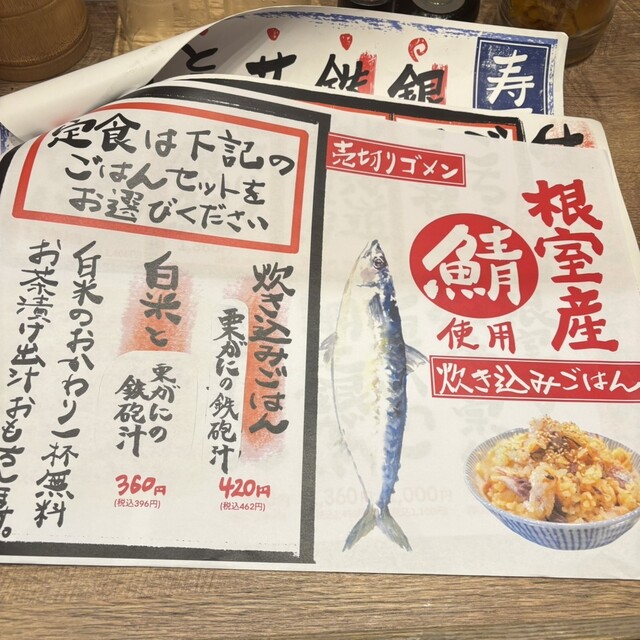 寿
銀
鉄
サ
と
定食は下記の
ごはんセットを
お選びください
炊き込みごはん
栗がにの鉄砲汁
420円
(税込462円)
白米と
栗がにの
鉄砲汁
360円
(税込396円)
白米のおかわり一杯無料
お茶漬け出汁おもちします。
売切りゴメン
根室産
鯖
使用
炊き込みごはん